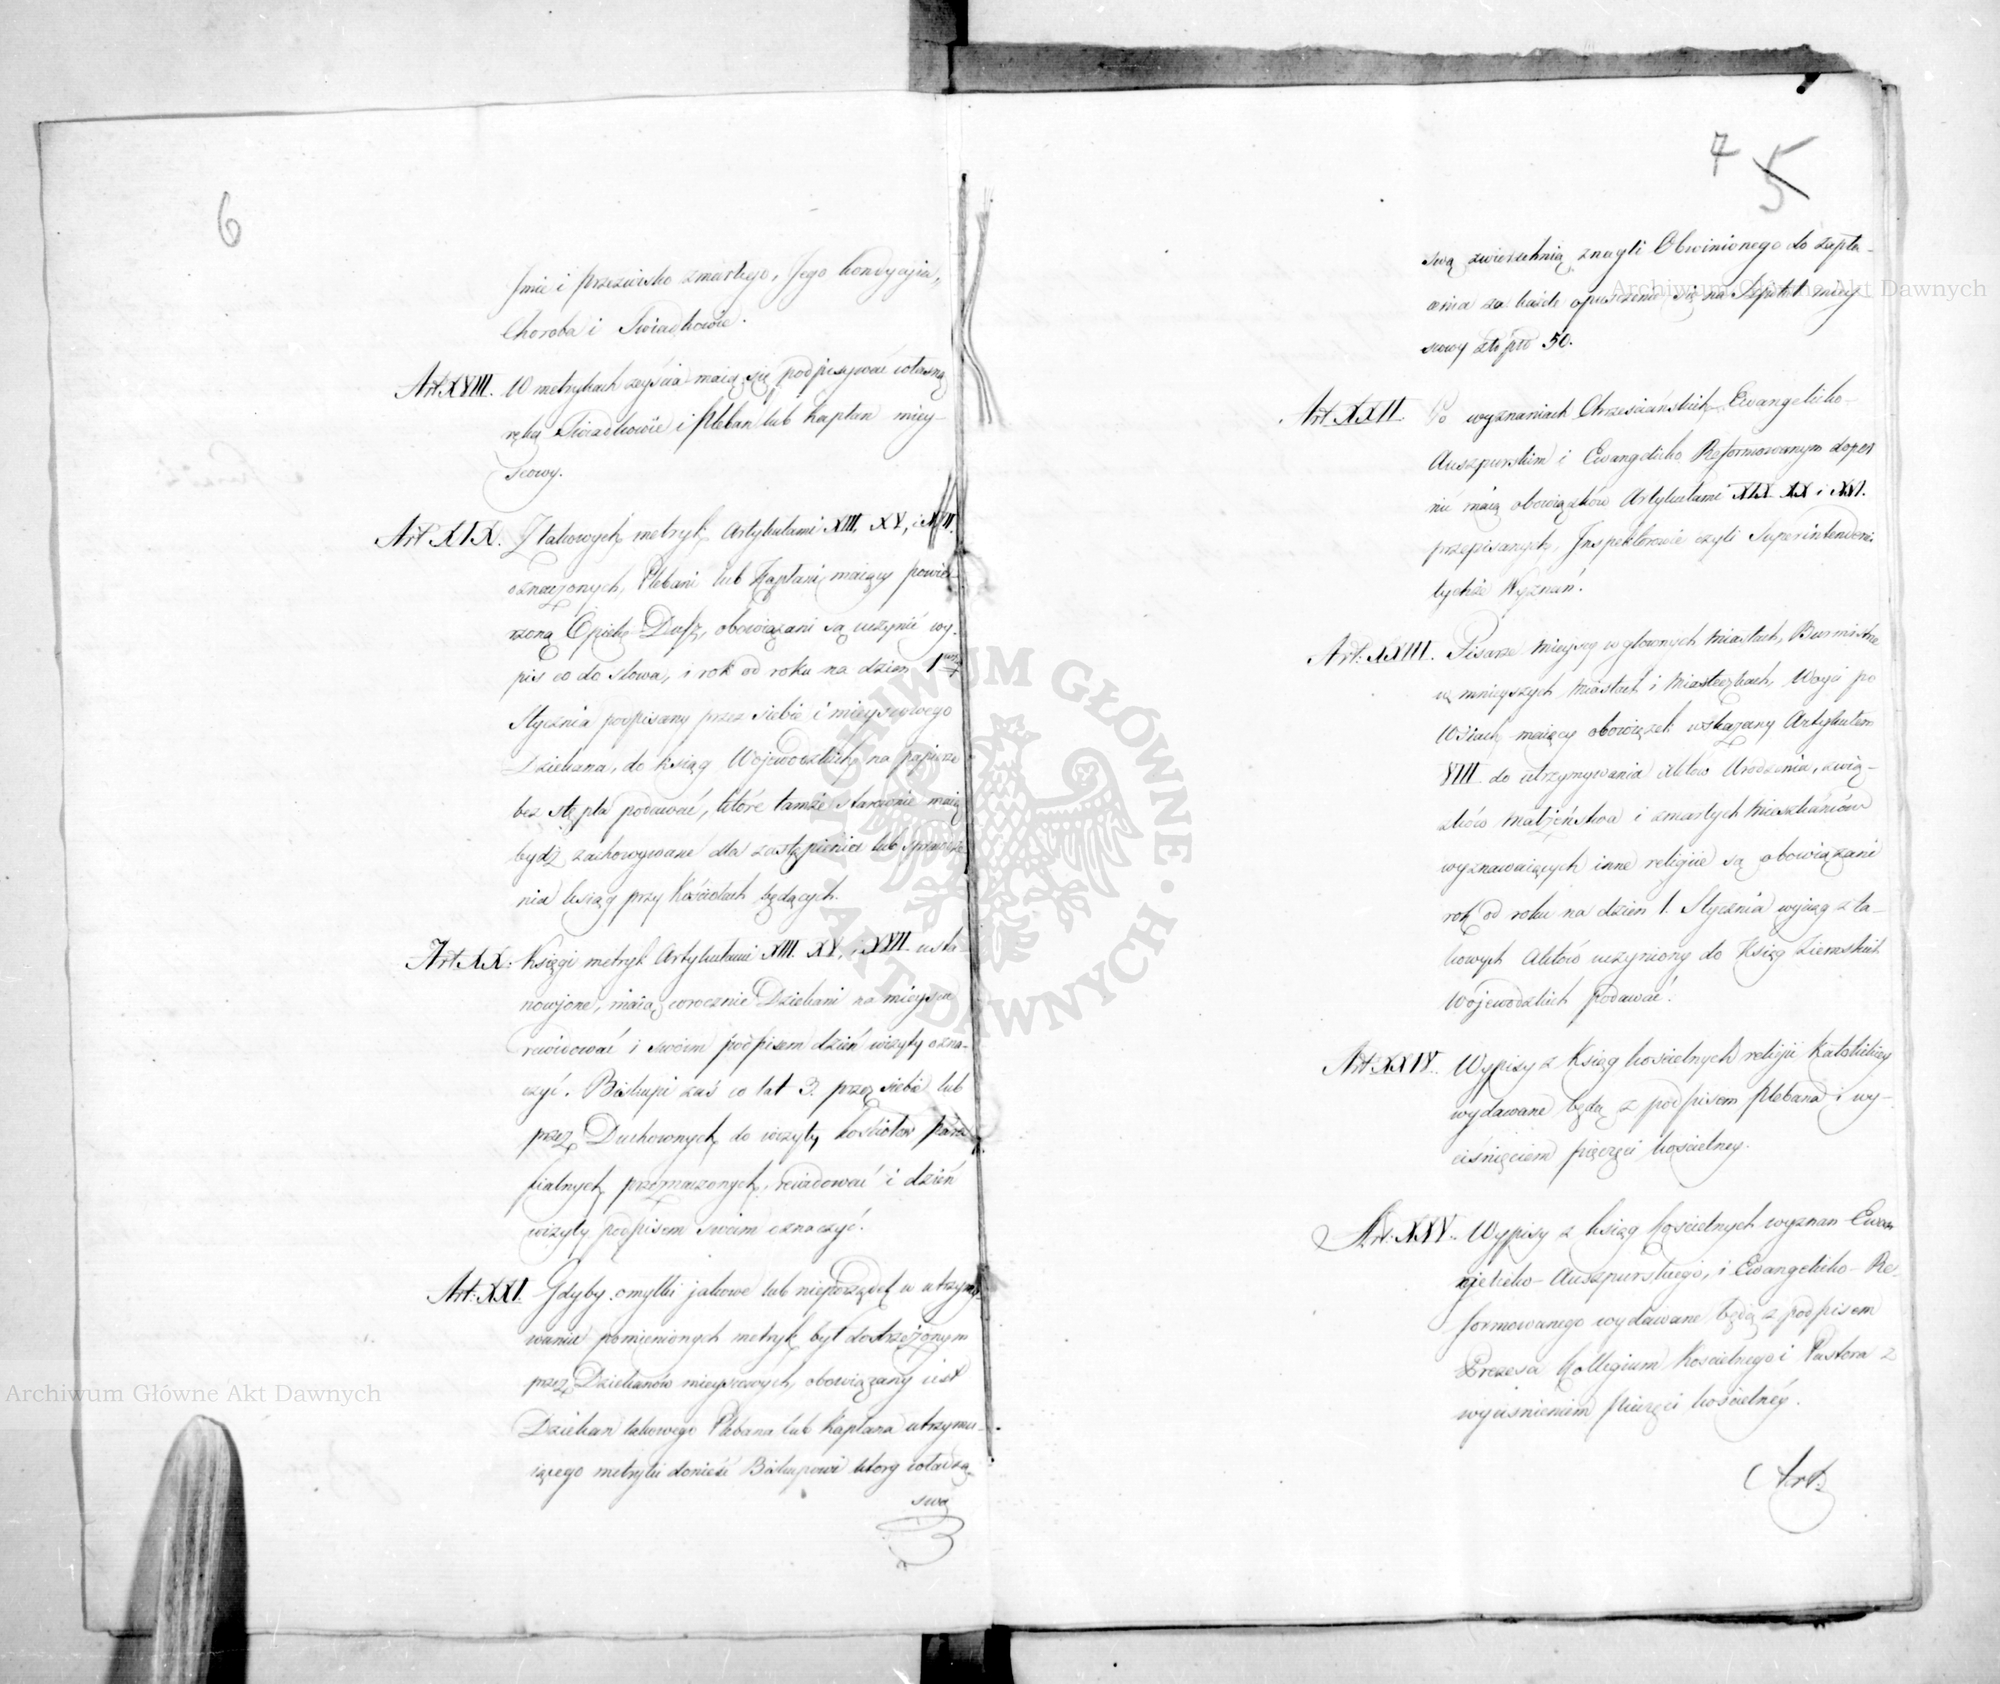 6
Jmie i przezwisko zmarłego, Jego kondycyia,
Choroba i Świadkowie.
Art XVIII. W metrykach zeyścia maią się podpisywać własną
ręką Świadkowie i Pleban lub Kapłan miey-
scowy.
Art XIX. Z takowych metryk Artykułami XIII, XV, i XVII.
oznaczonych, Plebani lub Kapłani maiący powie-
rzoną Opiekę Dusz, obowiązani są uczynić wy-
pis co do słowa, i rok od roku na dzien 1wszy
Stycznia podpisany przez siebie i mieyscowego
Dziekana, do ksiąg Wojewodzkich na papierze
bez stępla podawać, które tamże starownie maią
bydź zachowywane dla zastąpienia lub sprawdze
nia ksiąg przy Kościołach będących.
Art XX. Księgi metryk Artykułami XIII. XV, i XVII. usta
nowione, maią corocznie Dziekani na mieyscu
rewidować i swoim podpisem dzień wizyty ozna-
czyć. Biskupi zaś co lat 3. przez siebie lub
przez Duchownych do wizyty kościołow para
fialnych przeznaczonych, rewidować i dzień
wizyty podpisem swoim oznaczyć.
Art: XXI. Gdyby omyłki jakowe lub nieporządek w utrzymy
waniu pomienionych metryk był dostrzeżonym
przez Dziekanów mieyscowych, obowiązany iest
Dziekan takowego Plebana lub Kapłana utrzymu-
iącego metryki donieść Biskupowi ktory władzą
swą
7 5
swą zwierzchnią znagli Obwinionego do zapła-
cenia za każde opuszczenie się na Szpital miey
scowy złł pol 50.
Art XXII. Po wyznaniach Chrześciańskich Ewangelicko-
Auszpurskim i Ewangelicko Reformowanym dopeł
nić maią obowiązków Artykułami XIX XX i XXI.
przepisanych, Jnspektorowie czyli Superintendenci
tychże Wyznań.
Art: XXIII. Pisarze mieyscy w głownych miastach, Burmistrze
w mnieyszych miastach i miasteczkach, Woyci po
Wsiach maiący obowiązek wskazany Artykułem
VIII do utrzymywania Aktów Urodzenia, zwią-
zków małżeństwa i zmarłych mieszkańców
wyznawaiących inne religiie są obowiązani
rok od roku na dzien 1. Stycznia wyciąg z ta-
kowych Aktów uczyniony do Ksiąg Ziemskich
Wojewodzkich podawać.
Art: XXIV. Wypisy z Ksiąg kościelnych religii Katolickiey
wydawane będą z podpisem Plebana i wy-
ciśnięciem pieczęci kościelney.
Art: XXV. Wypisy z ksiąg kościelnych wyznan Ewan
gielicko-Auszpurskiego, i Ewangelicko-Re-
formowanego wydawane będą z podpisem
Prezesa Kollegium Koscielnego i Pastora z
wyciśnieniem Pieczęci kościelnéy.
Art:
Archiwum Główne Akt Dawnych
Archiwum Główne Akt Dawnych
ARCHIWUM GŁÓWNE · AKT DAWNYCH ·